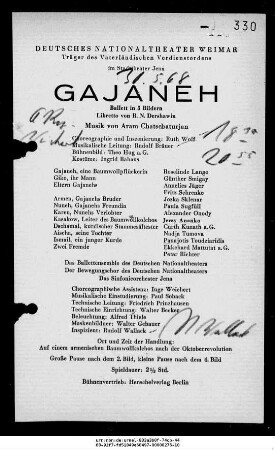 330
DEUTSCHES NATIONALTHEATER WEIMAR
Träger des Vaterländischen Verdienstordens
im Stadttheater Jena
GAJANEH
Ballett in 5 Bildern
Libretto von R. N. Dershawin
Musik von Aram Chatschaturjan
Choreographie und Inszenierung: Ruth Wolf
Musikalische Leitung: Rudolf Bräuer
Bühnenbild: Theo Hug a. G.
Kostüme: Ingrid Rahaus
Gajaneh, eine Baumwollpflückerin Roselinde Lange
Giko, ihr Mann Günther Smigay
Eltern Gajanehs Annelies Jäger
Fritz Schrenko
Armen, Gajanehs Bruder Joska Sklenar
Nuneh, Gajanehs Freundin Paula Sugfüll
Karen, Nunehs Verlobter Alexander Oandy
Kasakow, Leiter des Baumwollkolchos Jerzy
Dschamal, kurdischer Stammesältester Curth Kunath a. G.
Aischa, seine Tochter Nadja Tuneva
Ismail, ein junger Kurde Panajotis Toudeiaridis
Zwei Fremde Ekkehard Matturini a. G.
Peter Richter
Das Ballettensemble des Deutschen Nationaltheaters
Der Bewegungschor des Deutschen Nationaltheaters
Das Sinfonieorchester Jena
Choreographische Assistenz: Inge Weichert
Musikalische Einstudierung: Paul Schack
Technische Leitung: Friedrich Prinzhausen
Technische Einrichtung: Walter Becker
Beleuchtung: Alfred Thiele
Maskenbildner: Walter Gebauer
Inspizient: Rudolf Wallack
Ort und Zeit der Handlung:
Auf einem armenischen Baumwollkolchos nach der Oktoberrevolution
Große Pause nach dem 2. Bild, kleine Pause nach dem 4. Bild
Spieldauer: 2½ Std.
Bühnenvertrieb: Henschelverlag Berlin